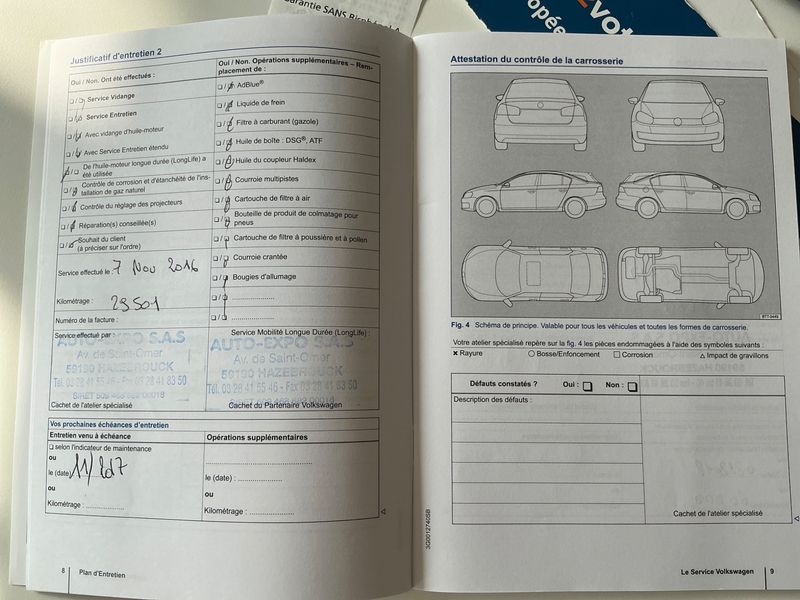 arantie SANS
vot
opée
Justificatif d'entretien 2
Oui / Non. Ont été effectués :
Service Vidange
Service Entretien
Avec vidange d'huile-moteur
Avec Service Entretien étendu
De l'huile-moteur longue durée (LongLife) a
été utilisée
Contrôle de corrosion et d'étanchéité de l'ins-
tallation de gaz naturel
Contrôle du réglage des projecteurs
Réparation(s) conseillée(s)
Souhait du client
(à préciser sur l'ordre)
Service effectué le 7 Nov 2016
Kilométrage : 29501
Numéro de la facture :
Oui / Non. Opérations supplémentaires – Rem-
placement de :
AdBlue®
Liquide de frein
Filtre à carburant (gazole)
Huile de boîte : DSG®, ATF
Huile du coupleur Haldex
Courroie multipistes
Cartouche de filtre à air
Bouteille de produit de colmatage pour
pneus
Cartouche de filtre à poussière et à pollen
Courroie crantée
Bougies d'allumage
Service effectué par :
AUTO-EXPO S.A.S
Av. de Saint-Omer
59190 HAZEBROUCK
Tél. 03 28 41 55 46 - Fax 03 28 41 83 50
Cachet de l'atelier spécialisé
Service Mobilité Longue Durée (LongLife) :
AUTO-EXPO S.A.S
Av. de Saint-Omer
59190 HAZEBROUCK
Tél. 03 28 41 55 46 - Fax 03 28 41 83 50
Cachet du Partenaire Volkswagen
Vos prochaines échéances d'entretien
Entretien venu à échéance
❑ selon l'indicateur de maintenance
ou
le (date) 11/2017
ou
Kilométrage : ....................
Opérations supplémentaires
le (date) : ....................
ou
Kilométrage : ....................
8 Plan d'Entretien
Attestation du contrôle de la carrosserie
B7T-0449
Fig. 4 Schéma de principe. Valable pour tous les véhicules et toutes les formes de carrosserie.
Votre atelier spécialisé repère sur la fig. 4 les pièces endommagées à l'aide des symboles suivants :
× Rayure ○ Bosse/Enfoncement □ Corrosion △ Impact de gravillons
Défauts constatés ? Oui : ❑ Non : ❑
Description des défauts :
Cachet de l'atelier spécialisé
3G0012740SB
Le Service Volkswagen 9